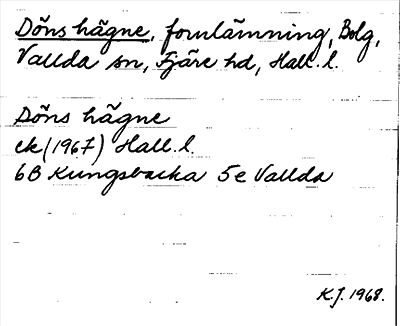 Döns hägne, fornlämning, Bolg,
Vallda sn, Fjäre hd, Hall. l.
Döns hägne
ek (1967) Hall. l.
6B Kungsbacka 5e Vallda
K.J. 1968.